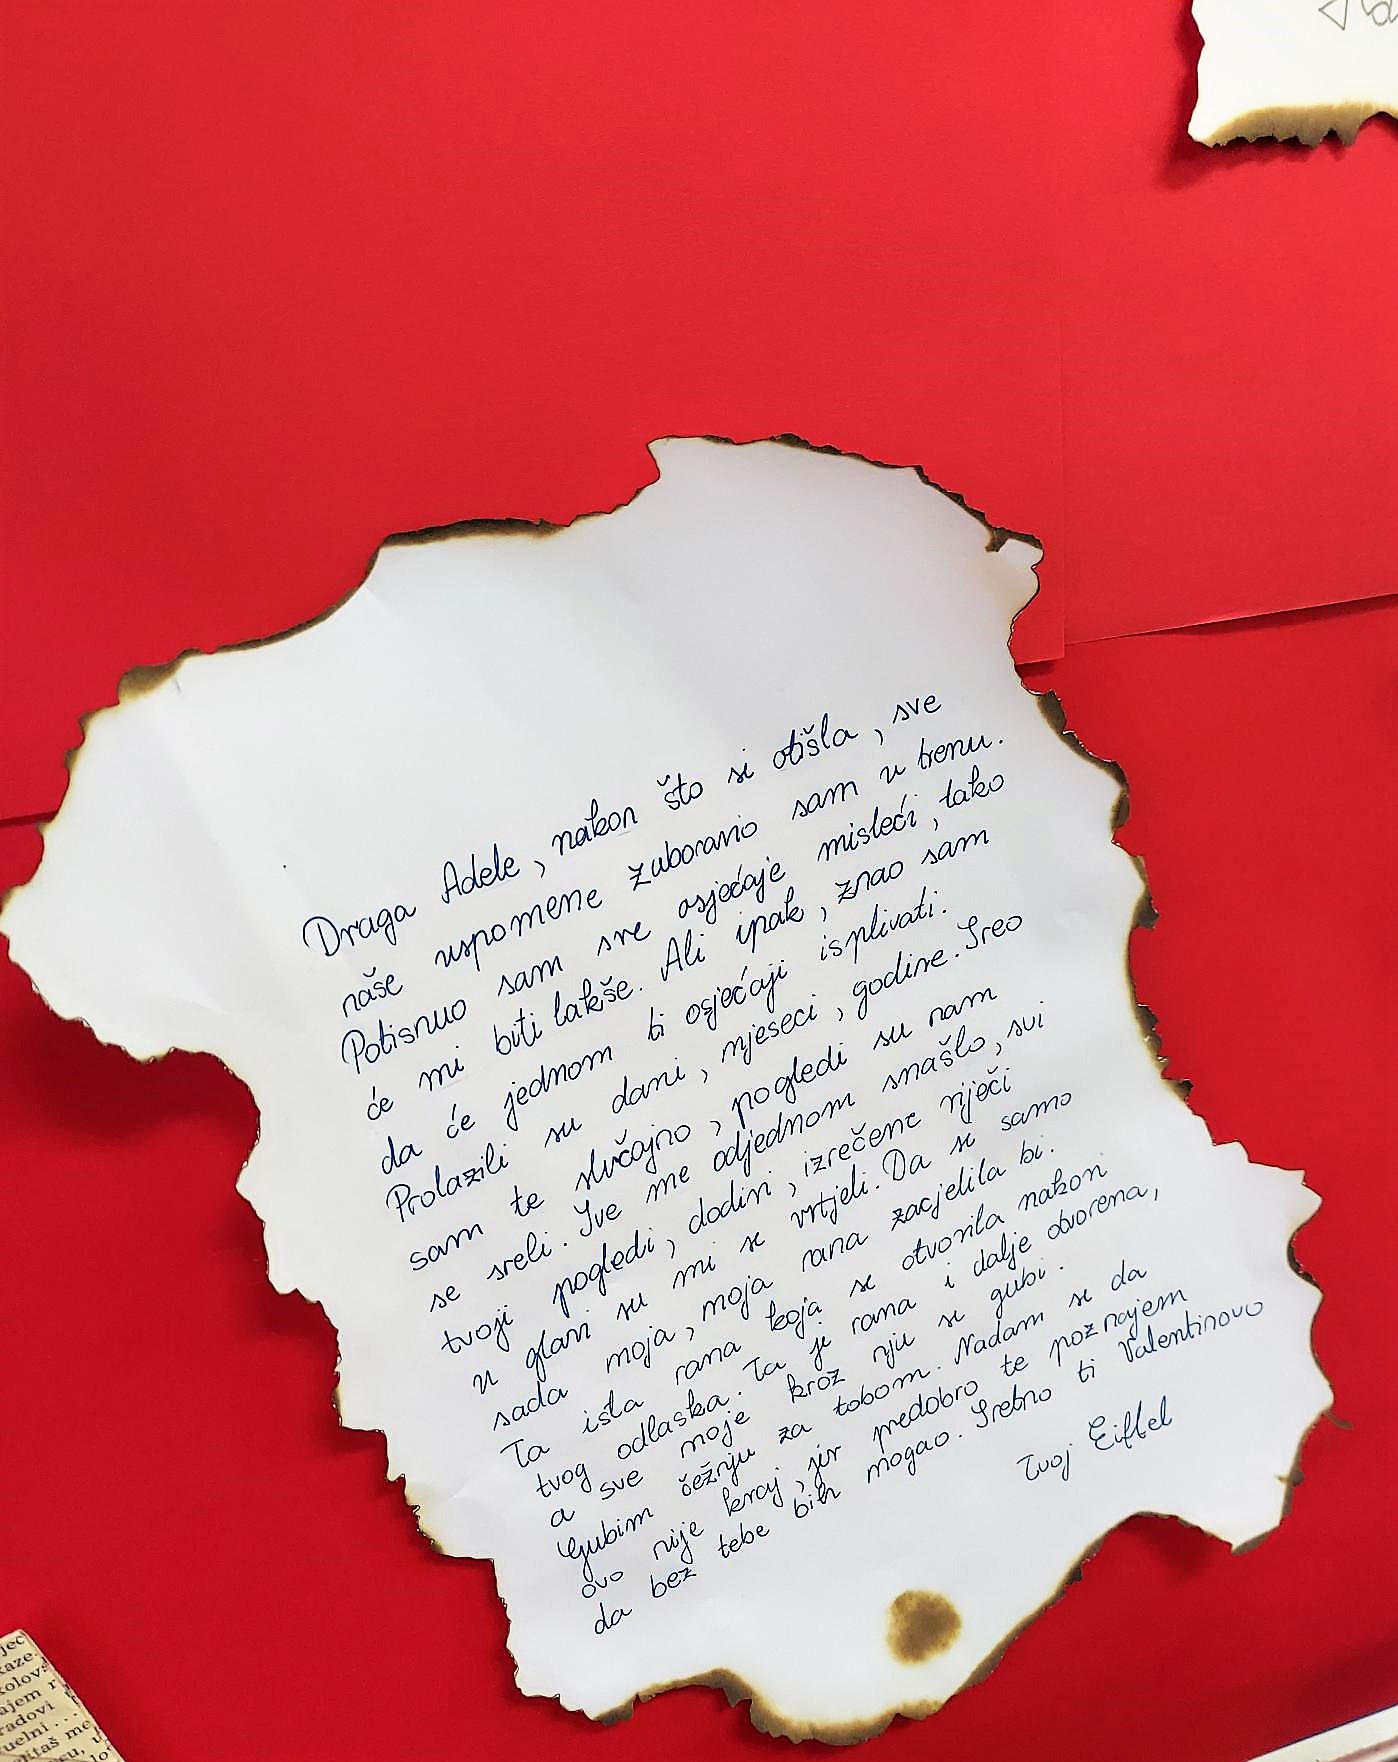 Draga Adele, nakon što si otišla, sve
naše uspomene zaboravio sam u trenu.
Potisnuo sam sve osjećaje misleći, lako
će mi biti lakše. Ali ipak, znao sam
da će jednom ti osjećaji isplivati.
Prolazili su dani, mjeseci, godine. Sreo
sam te slučajno, pogledi su nam
se sreli. Sve me odjednom snašlo, svi
tvoji pogledi, dodiri, izrečene riječi
u glavi su mi se vrtjeli. Da si samo
sada moja, moja rana zacjelila bi.
Ta ista rana koja se otvorila nakon
tvog odlaska. Ta je rana i dalje otvorena,
a sve moje kroz nju se gubi.
Gubim čežnju za tobom. Nadam se da
ovo nije kraj, jer predobro te poznajem
da bez tebe bih mogao. Sretno ti Valentinovo
Tvoj Eiffel
jec
kaze
kolovs
ajem r
radovi
uelni...
me